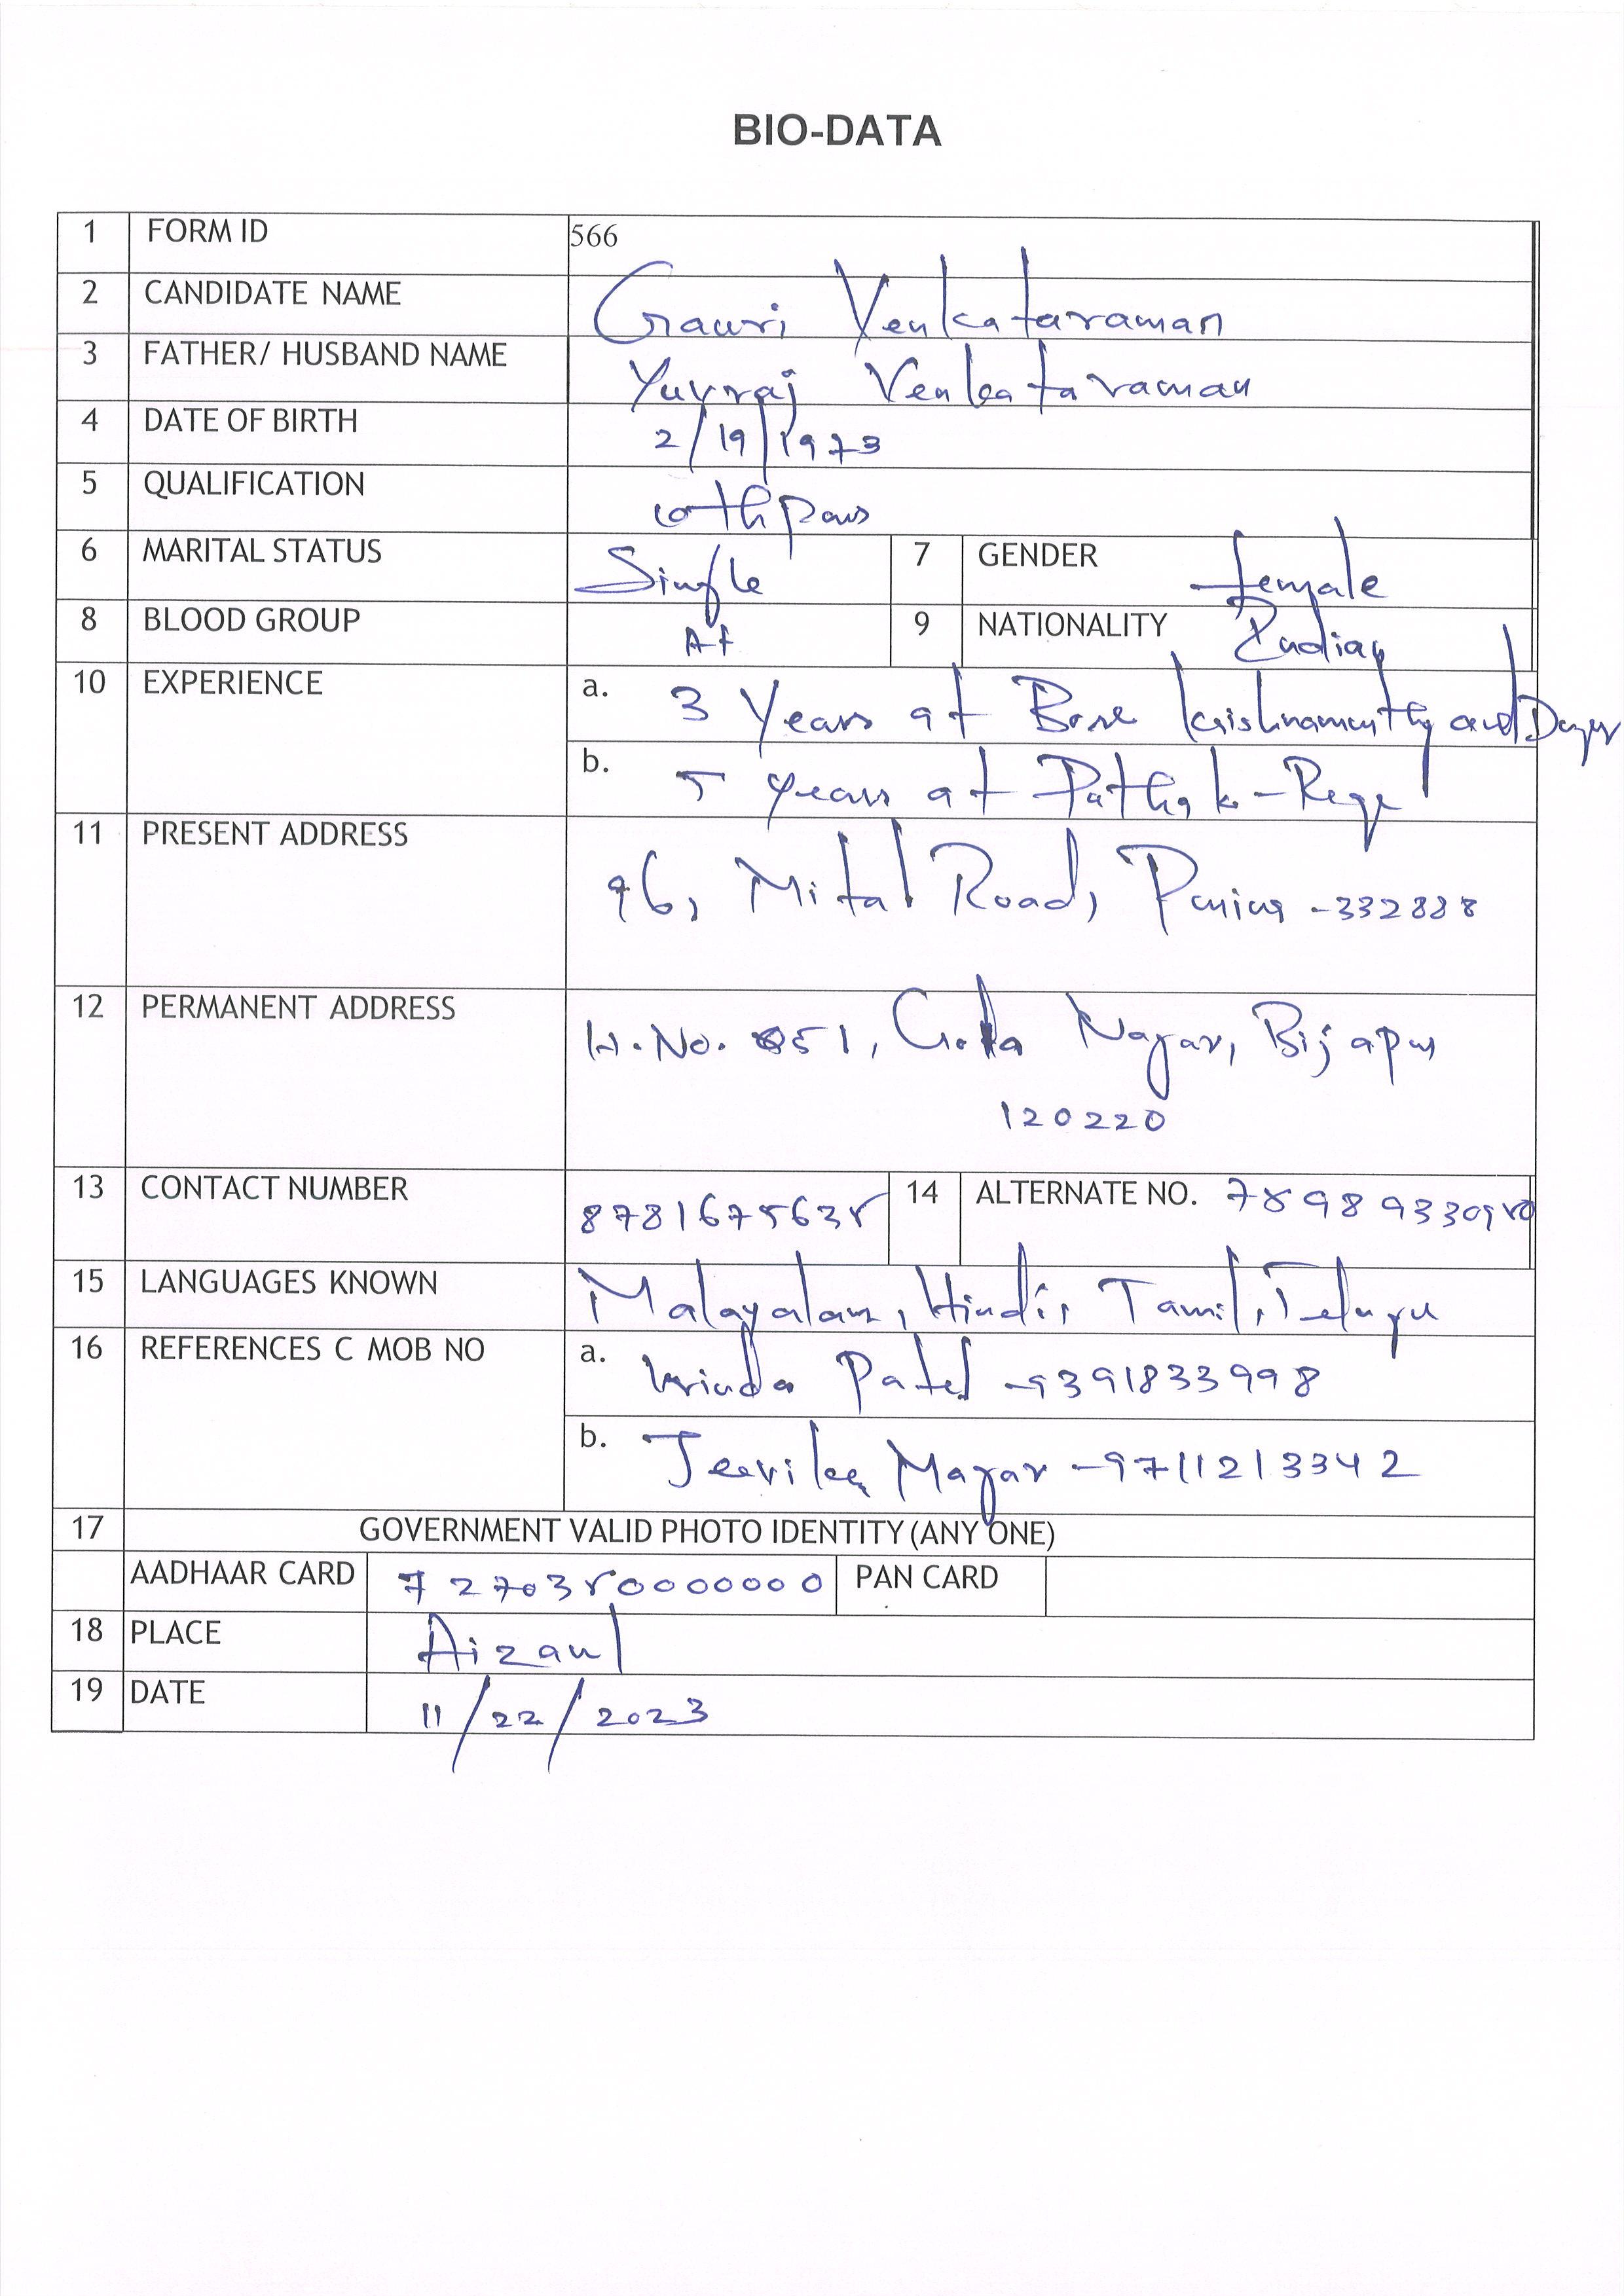 BIO-DATA
1 FORM ID 566
2 CANDIDATE NAME Gauri Venkataraman
3 FATHER/ HUSBAND NAME Yuvraj Venkataraman
4 DATE OF BIRTH 2/19/1973
5 QUALIFICATION 10th pass
6 MARITAL STATUS Single 7 GENDER female
8 BLOOD GROUP A+ 9 NATIONALITY Indian
10 EXPERIENCE a. 3 Years at Bose Krishnamurthy and
b. 5 years at Pathak-Rege
11 PRESENT ADDRESS 96, Mital Road, -332888
12 PERMANENT ADDRESS H.No. 51, Nagar, Bijapur
120220
13 CONTACT NUMBER 8781675635 14 ALTERNATE NO. 789893309
15 LANGUAGES KNOWN Malayalam, Hindi, Tamil, Telugu
16 REFERENCES C MOB NO a. Vrinda Patel -9391833998
b. Magar -9711213342
17 GOVERNMENT VALID PHOTO IDENTITY (ANY ONE)
AADHAAR CARD 727035000000 PAN CARD
18 PLACE Aizawl
19 DATE 11/22/2023